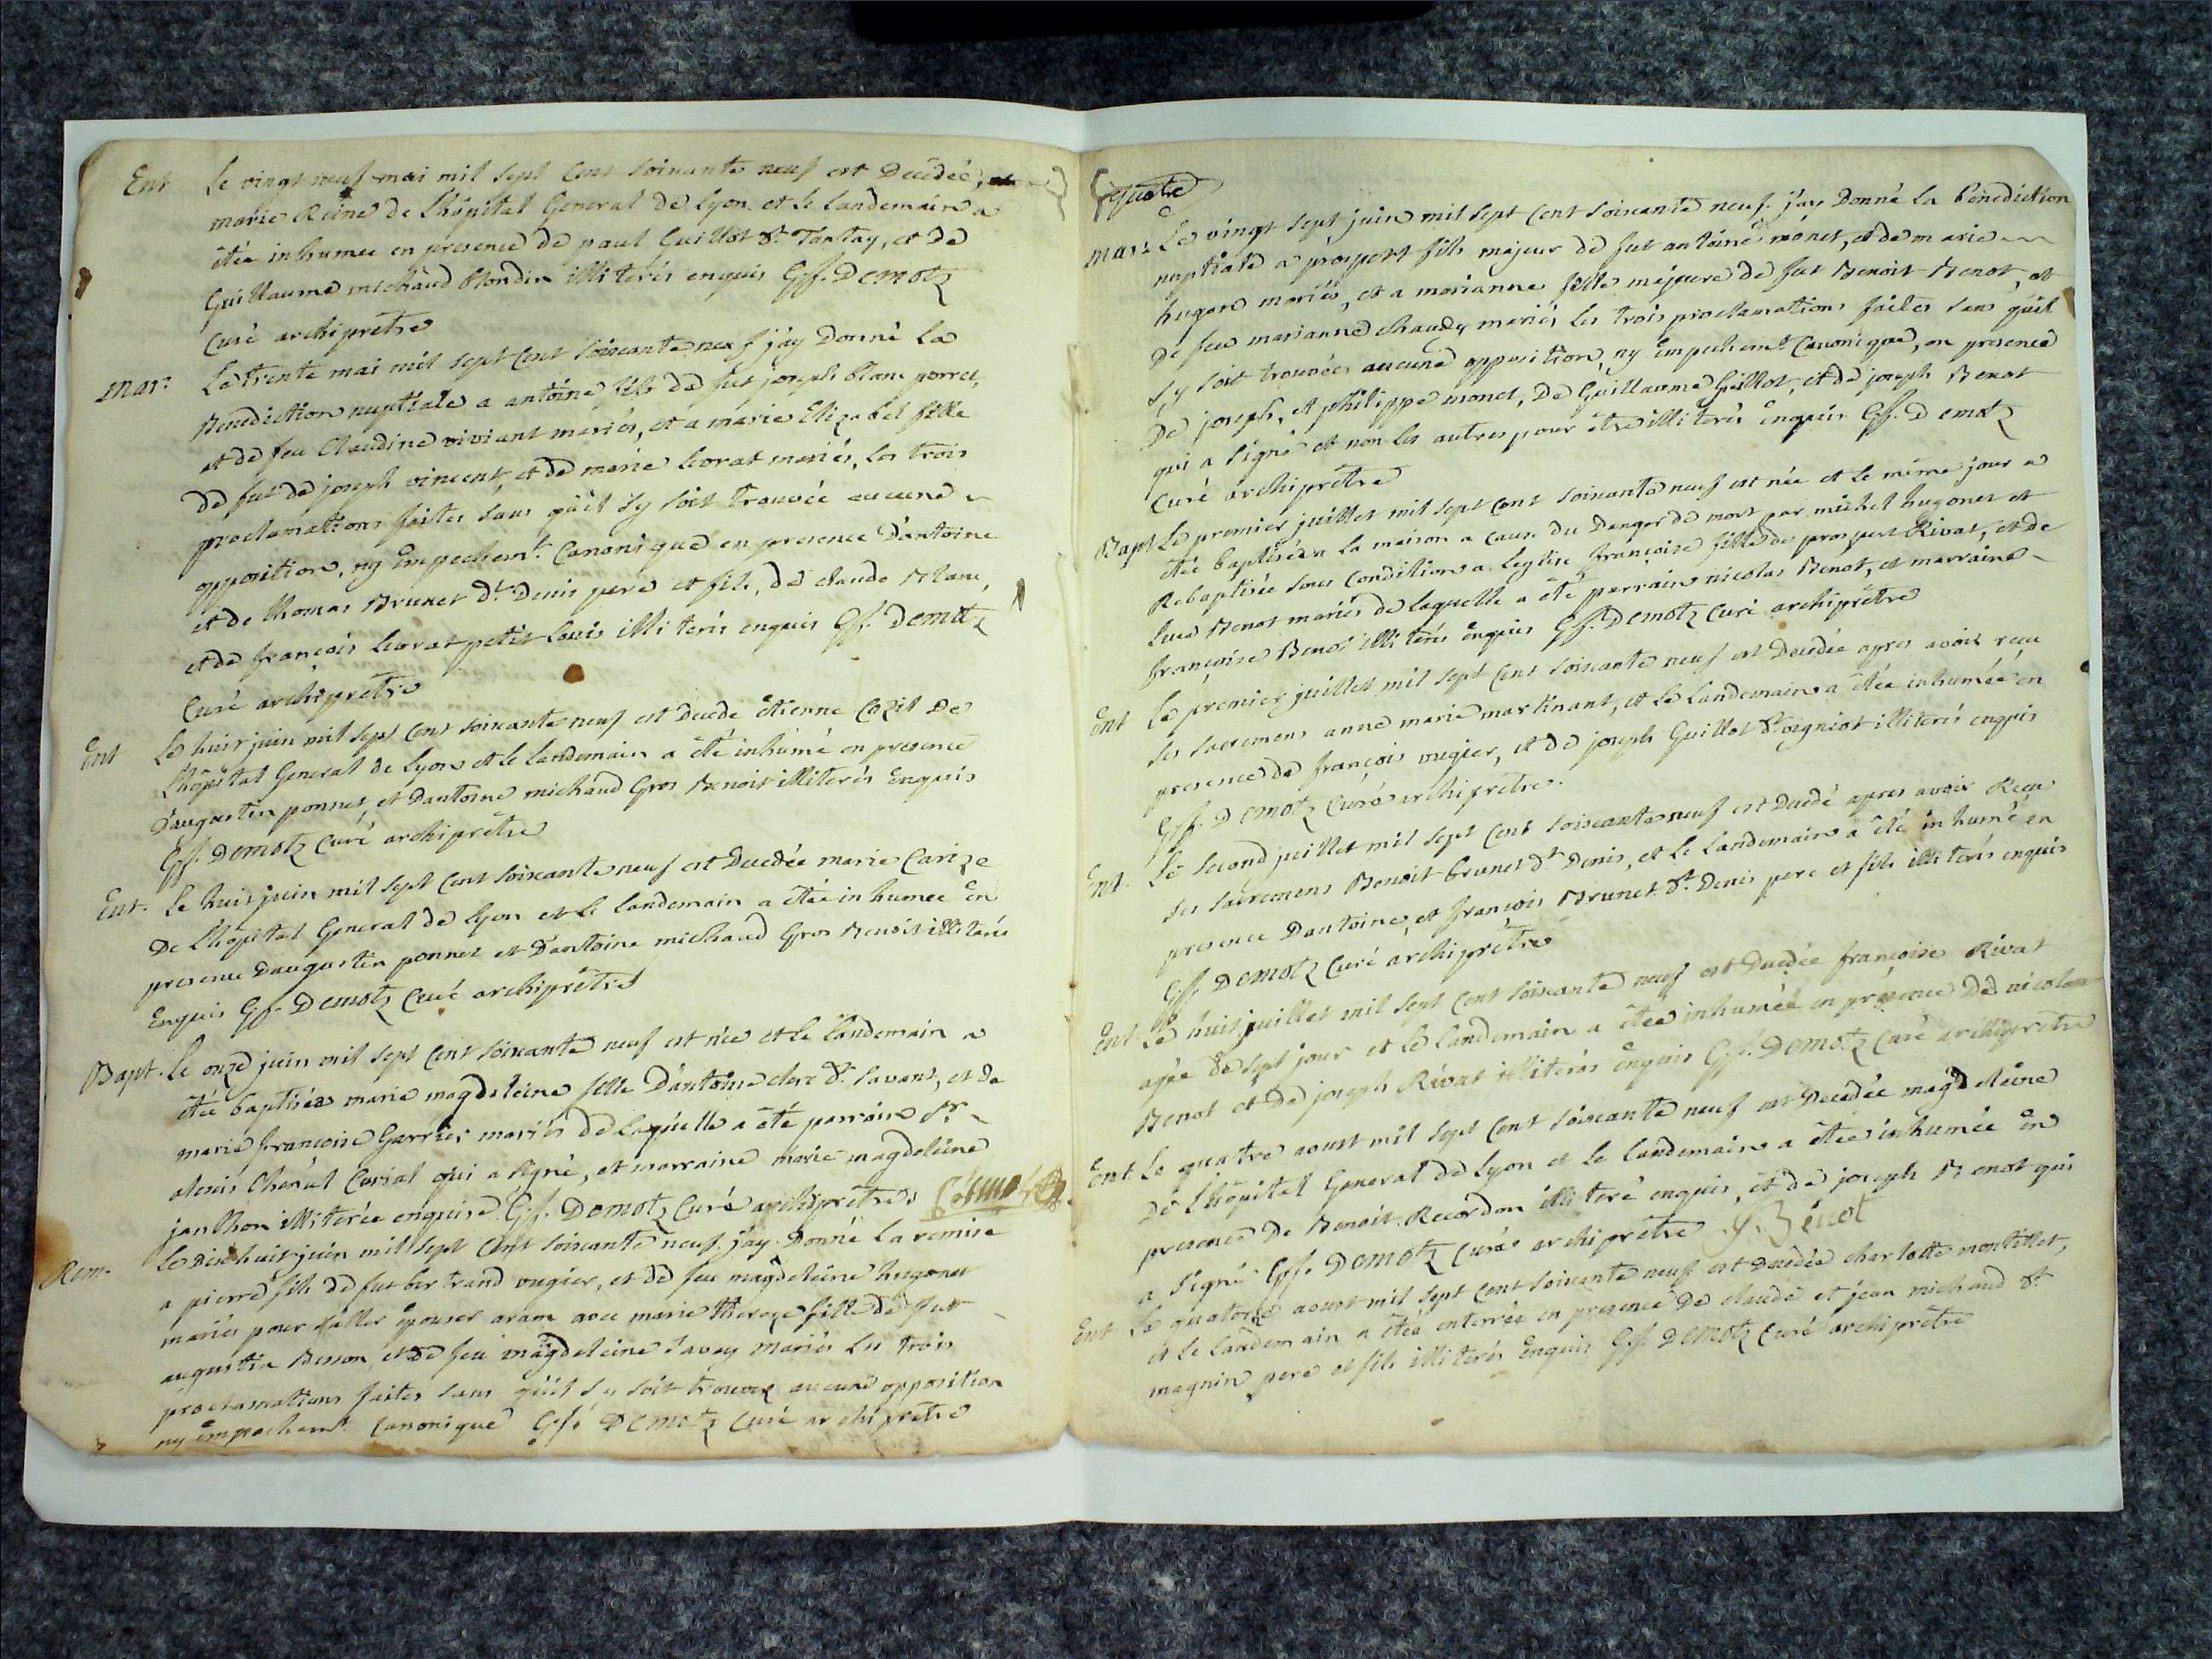 Ent Le vingt neuf mai mil sept cent soixante neuf est Decédée,
marie Reine de Lhôpital General de Lyon et le landemain a
étée inhumee en presence de paul Guillot dt Tantay, et de
Guillaume michaud blondin illiterés enquis Gf. Demotz
Curé archiprêtre
mar: Le trente mai mil sept cent soixante neuf j'ay Donné la
Benediction nuptiale a antoine fils de fut joseph blanc porret,
et de feu Claudine viviant mariés, et a marie Elizabel fille
de fut de joseph vincent, et de marie levrat mariés, les trois
proclamations faites sans qu'il s'y soit trouvée aucune
opposition, ny Empechemt. Canonique en presence D'antoine
et de thomas Brunet dt. Denis pere et fils, de claude Blanc,
et de françois levrat petit Louis illiterés enquis Gf. Demotz
Curé archiprêtre
Ent Le huit juin mil sept cent soixante neuf est decede étienne Cozil De
Lhôpital General de Lyon et le landemain a été inhumé en presence
D'augustin ponnet, et D'antoine michaud Gros Benoit illiterés Enquis
Gf. Demotz Curé archiprêtre
Ent. Le huit juin mil sept cent soixante neuf est Decedée marie Carize
De Lhôpital General de Lyon et le landemain a étée inhumee En
presence D'augustin ponnet et D'antoine michaud Gros Benoit illiterés
Enquis Gf. Demotz Curé archiprêtre
Bapt. Le onze juin mil sept cent soixante neuf est née et le landemain a
étée baptisée marie magdeleine fille D'antoine clerc dt. Savant, et de
marie françoise Garrier mariés de laquelle a été parrain Sr.
alexis Chenal Curial qui a signé, et marraine marie magdeleine
janthon illiterée enquise Gf. Demotz Curé archiprêtre
Rem. Le dixhuit juin mil sept cent soixante neuf j'ay Donné la remise
a pierre fils de fut bertrand vugier, et de feu magdeleine hugonet
mariés pour aller épouser aram avec marie thereze fille de fut
augustin Besson, et de feu magdeleine Savey mariés les trois
proclamations faites sans qu'il s'y soit trouvée aucune opposition
ny empechemt. Canonique Gf. Demotz Curé archiprêtre
mar: Le vingt sept juin mil sept cent soixante neuf j'ay Donné la Bénédiction
nuptiale a prospert fils majeur de fut antoine monet, et de marie
hugon mariés, et a marianne fille majeure de fut Benoit Benot, et
De feu marianne chaudy mariés les trois proclamations faites sans qu'il
s'y soit trouvées aucune opposition, ny Empechemt. Canonique, en presence
De joseph, et philippe monet, De Guillaume Guillot, et de joseph Benot
qui a signé et non les autres pour être illiterés enquis Gf. Demotz
Curé archiprêtre
Bapt Le premier juillet mil sept cent soixante neuf est née et le même jour a
étée baptisée a la maison a cause du Danger de mort par michel hugonet et
Rebaptisée sous Condition a Leglise françoise fille de prospert Rivat, et de
Benot mariés de laquelle a été parrain nicolas Benot, et marraine
françoise Benot illiterés Enquis Gf. Demotz Curé archiprêtre
Ent Le premier juillet mil sept cent soixante neuf est Decedée apres avoir reçu
ses sacremens anne marie martinant, et le landemain a étée inhumée en
presence de françois vugier, et de joseph Guillot dt. oigniot illiterés enquis
Gf. Demotz Curé archiprêtre.
Ent. Le second juillet mil sept cent soixante neuf est Decedé apres avoir Reçu
ses sacremens Benoit brunet dt. Denis, et le landemain a été inhumé en
presence D'antoine, et françois Brunet dt. Denis pere et fils illiterés enquis
Gf. Demotz Curé archiprêtre
Ent Le huit juillet mil sept cent soixante neuf est Decedée françoise Rivat
agée de sept jour et le landemain a étée inhumée en presence De nicolas
Benot et de joseph Rivat illiterés Enquis Gf. Demotz Curé archiprêtre
Ent Le quatre aoust mil sept cent soixante neuf est Decedée magdeleine
De Lhôpital General de Lyon et le landemain a étée inhumée En
presence De Benoit Recordon illiteré enquis, et de joseph Benot qui
a signé Gf. Demotz Curé archiprêtre J. Bénot
Ent Le quatorze aoust mil sept cent soixante neuf est Decedée charlotte montillet,
et le landemain a étée enterrée en presence De claude et jean michaud dt.
magnin pere et fils illiterés Enquis Gf. Demotz Curé archiprêtre